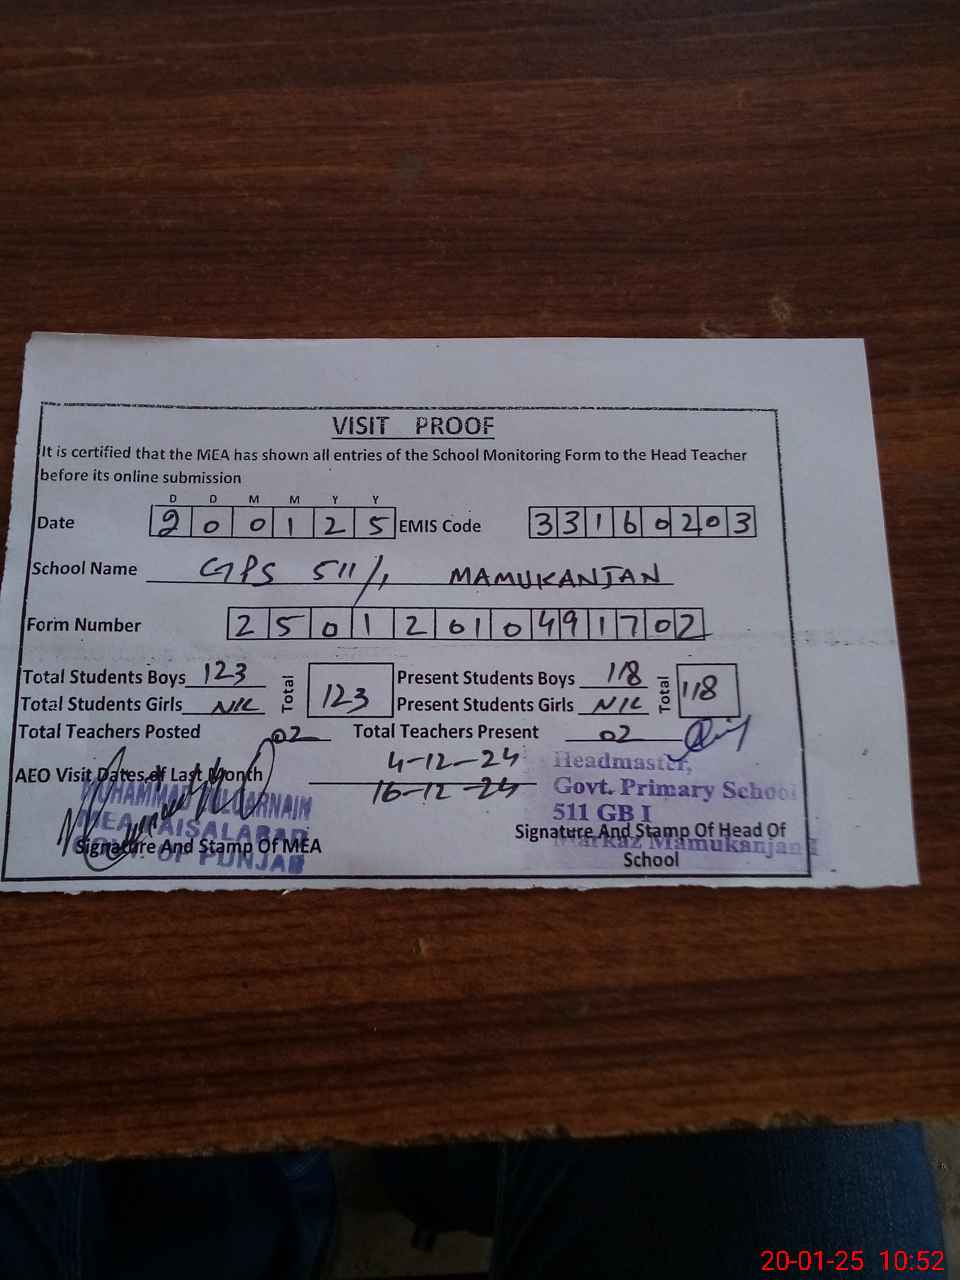 VISIT PROOF
It is certified that the MEA has shown all entries of the School Monitoring Form to the Head Teacher
before its online submission
D D M M Y Y
Date 2 0 0 1 2 5 EMIS Code 3 3 1 6 0 2 0 3
School Name GPS 511/1 MAMUKANJAN
Form Number 2 5 0 1 2 0 1 0 4 9 1 7 0 2
Total Students Boys 123 Total 123 Present Students Boys 118 Total 118
Total Students Girls NIL Present Students Girls NIL
Total Teachers Posted 02 Total Teachers Present 02
AEO Visit Dates of Last Month 4-12-24
16-12-24
MUHAMMAD
MEA FAISALABAD
GOVT. OF PUNJAB
Signature And Stamp Of MEA
Headmaster,
Govt. Primary School
511 GB I
Markaz Mamukanjan I
Signature And Stamp Of Head Of
School
20-01-25 10:52